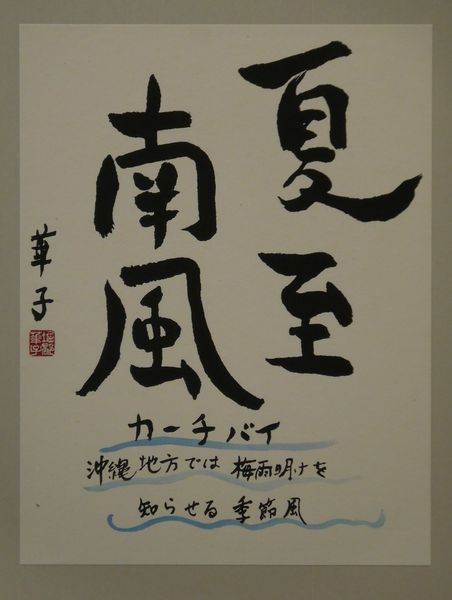 夏至
南風
カーチバイ
沖縄地方では梅雨明けを
知らせる季節風
華子